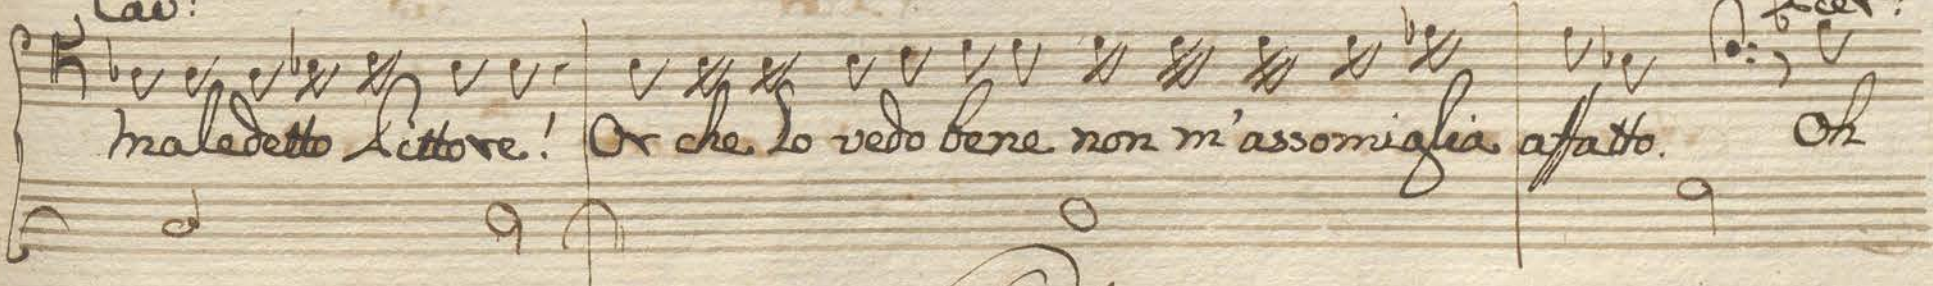 Cav:
maledetto Pittore! Or che lo vedo bene non m'assomiglia affatto. Oh